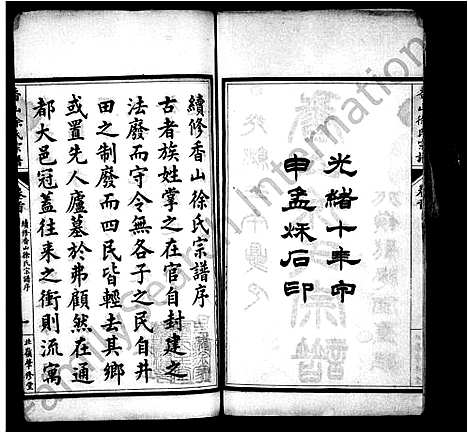 光緒十年甲
申孟秋石印
香山徐氏宗譜
卷首
續修香山徐氏宗譜序
古者族姓掌之在官自封建之
法廢而守令無各子之民自井
田之制廢而四民皆輕去其鄉
或置先人廬墓於弗顧然在通
都大邑冠蓋往來之衝則流寓
香山徐氏宗譜
卷首
續修香山徐氏宗譜序
一
北嶺肇修堂